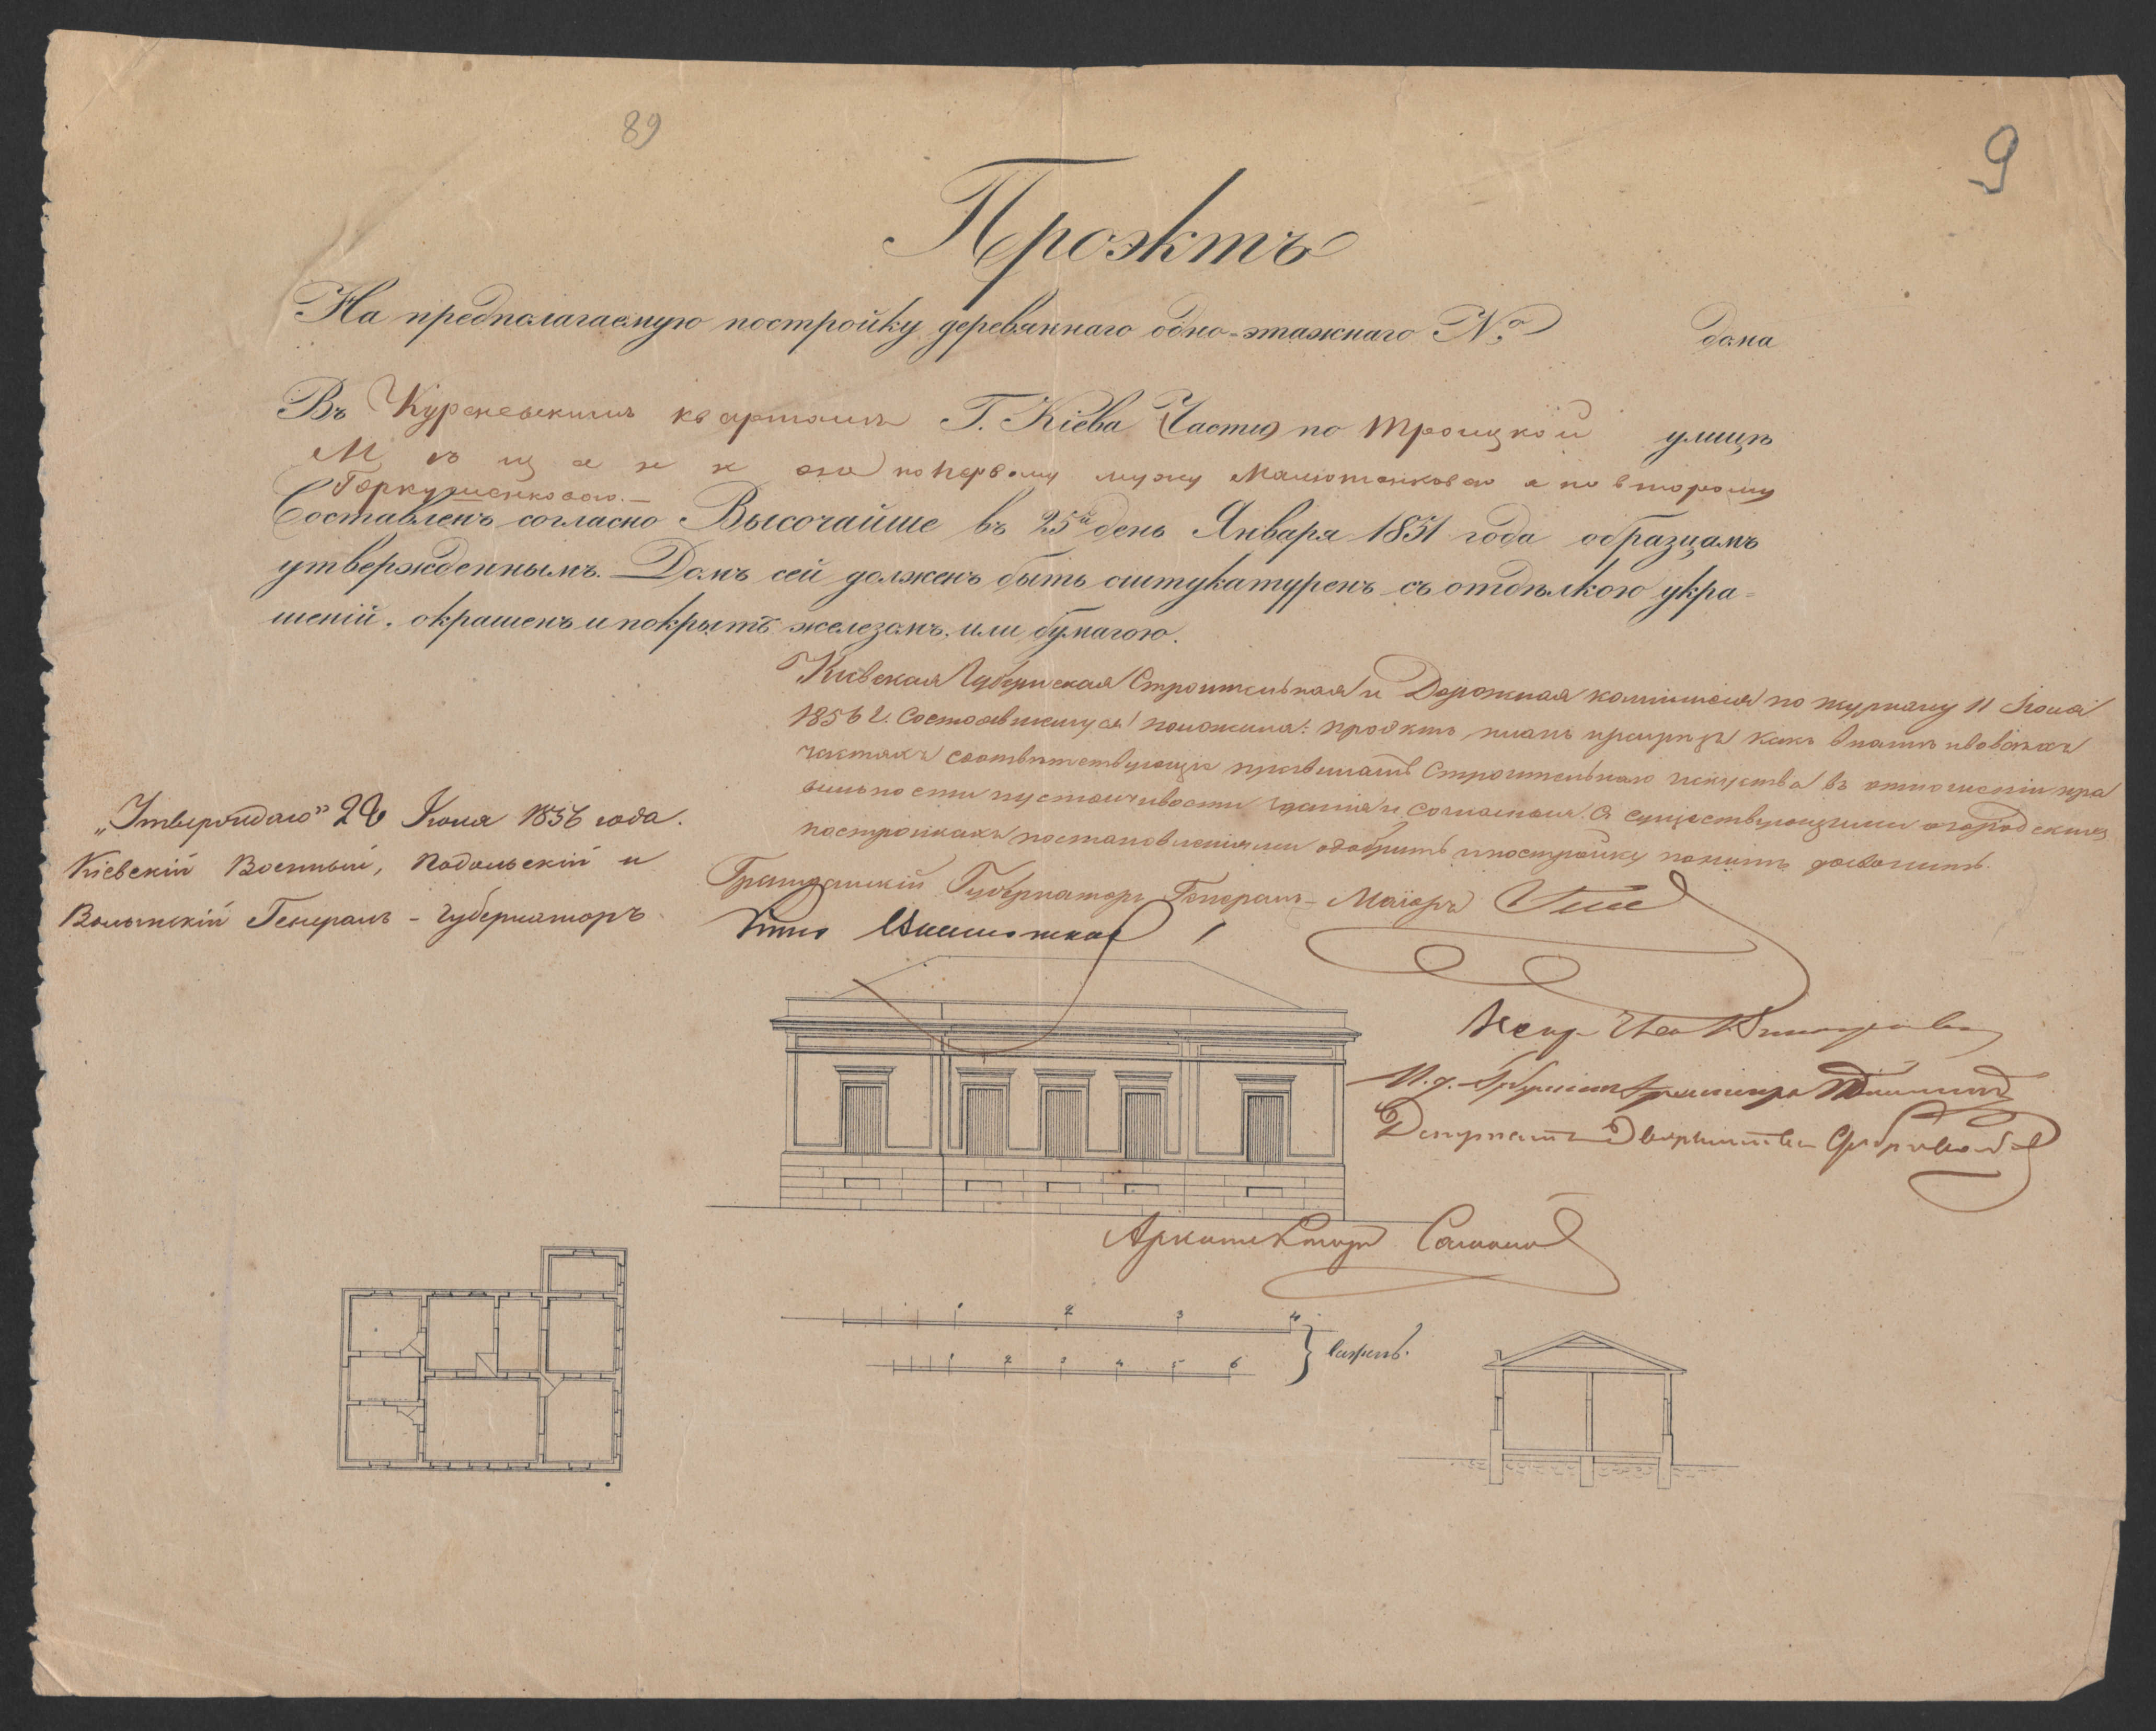 89
9
Проэктъ
На предполагаемую постройку деревяннаго одно-этажнаго №
дома
Въ Куреневскимъ кварталѣ Г. Кіева Частию по Троицкой улицѣ
Мѣщанки по первому мужу Малютенковою а по второму
Горкушенковою.—
Составленъ согласно Высочайше въ 25й день Января 1851 года образцамъ
утвержденнымъ. Домъ сей долженъ быть ощтукатуренъ съ отдѣлкою укра-
шеній, окрашенъ и покрытъ железомъ, или бумагою.
Кіевская Губернская Строительная и Дорожная коммисія по журналу 11 Іюня
1856 г. состоявшемуся положила: проэктъ
частяхъ соотвѣтствующія правиламъ Строительнаго искуства въ отношеніи пра
вильности и устойчивости зданія и согласныя съ существующими о городскихъ
постройкахъ постановленіями одобрить и постройку дозволить.
„Утверждаю" 28 Іюня 1856 года.
Кіевскій Военный, Подольскій и
Волынскій Генералъ-Губернаторъ
Гражданскій Губернаторъ Генералъ-Маіоръ
Князь Васильчиковъ
И. д. Губернскаго
Депутатъ Дворянства
Архитекторъ
1 2 3 4
1 2 3 4 5 6
сажень.